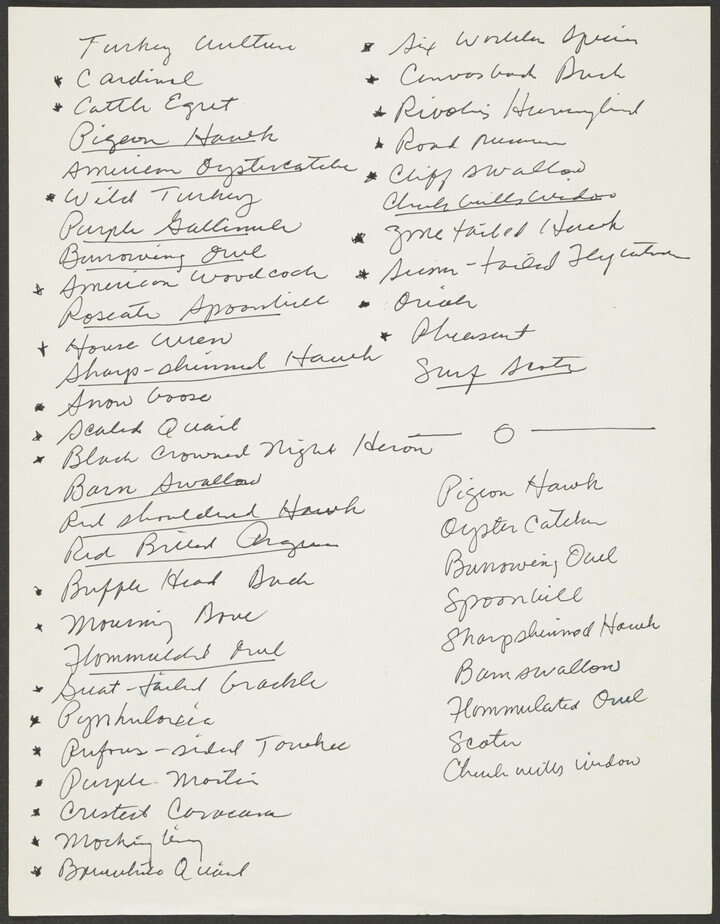 Turkey Vulture
* Cardinal
* Cattle Egret
Pigeon Hawk
American Oystercatcher
* Wild Turkey
Purple Gallinule
Burrowing Owl
* American Woodcock
Roseate Spoonbill
* House Wren
Sharp-shinned Hawk
* Snow Goose
* Scaled Quail
* Black Crowned Night Heron
Barn Swallow
Red shouldered Hawk
Red Billed
* Buffle Head Duck
* Mourning Dove
Flommulded Owl
* Great-tailed Grackle
* Pyrrhuloxia
* Rufous-sided Towhee
* Purple Martin
* Crested Caracara
* Mocking
* Quail
* Six Species
* Canvasback Duck
* Rivolis Hummingbird
* Road runner
* Cliff Swallow
Chuck wills widow
* Zone tailed Hawk
* -tailed Flycatcher
* Oriole
* Pheasant
Surf Scoter
— O —
Pigeon Hawk
Oyster Catcher
Burrowing Owl
Spoonbill
Sharpshinned Hawk
Barn swallow
Flommulated Owl
Scoter
Chuck wills widow